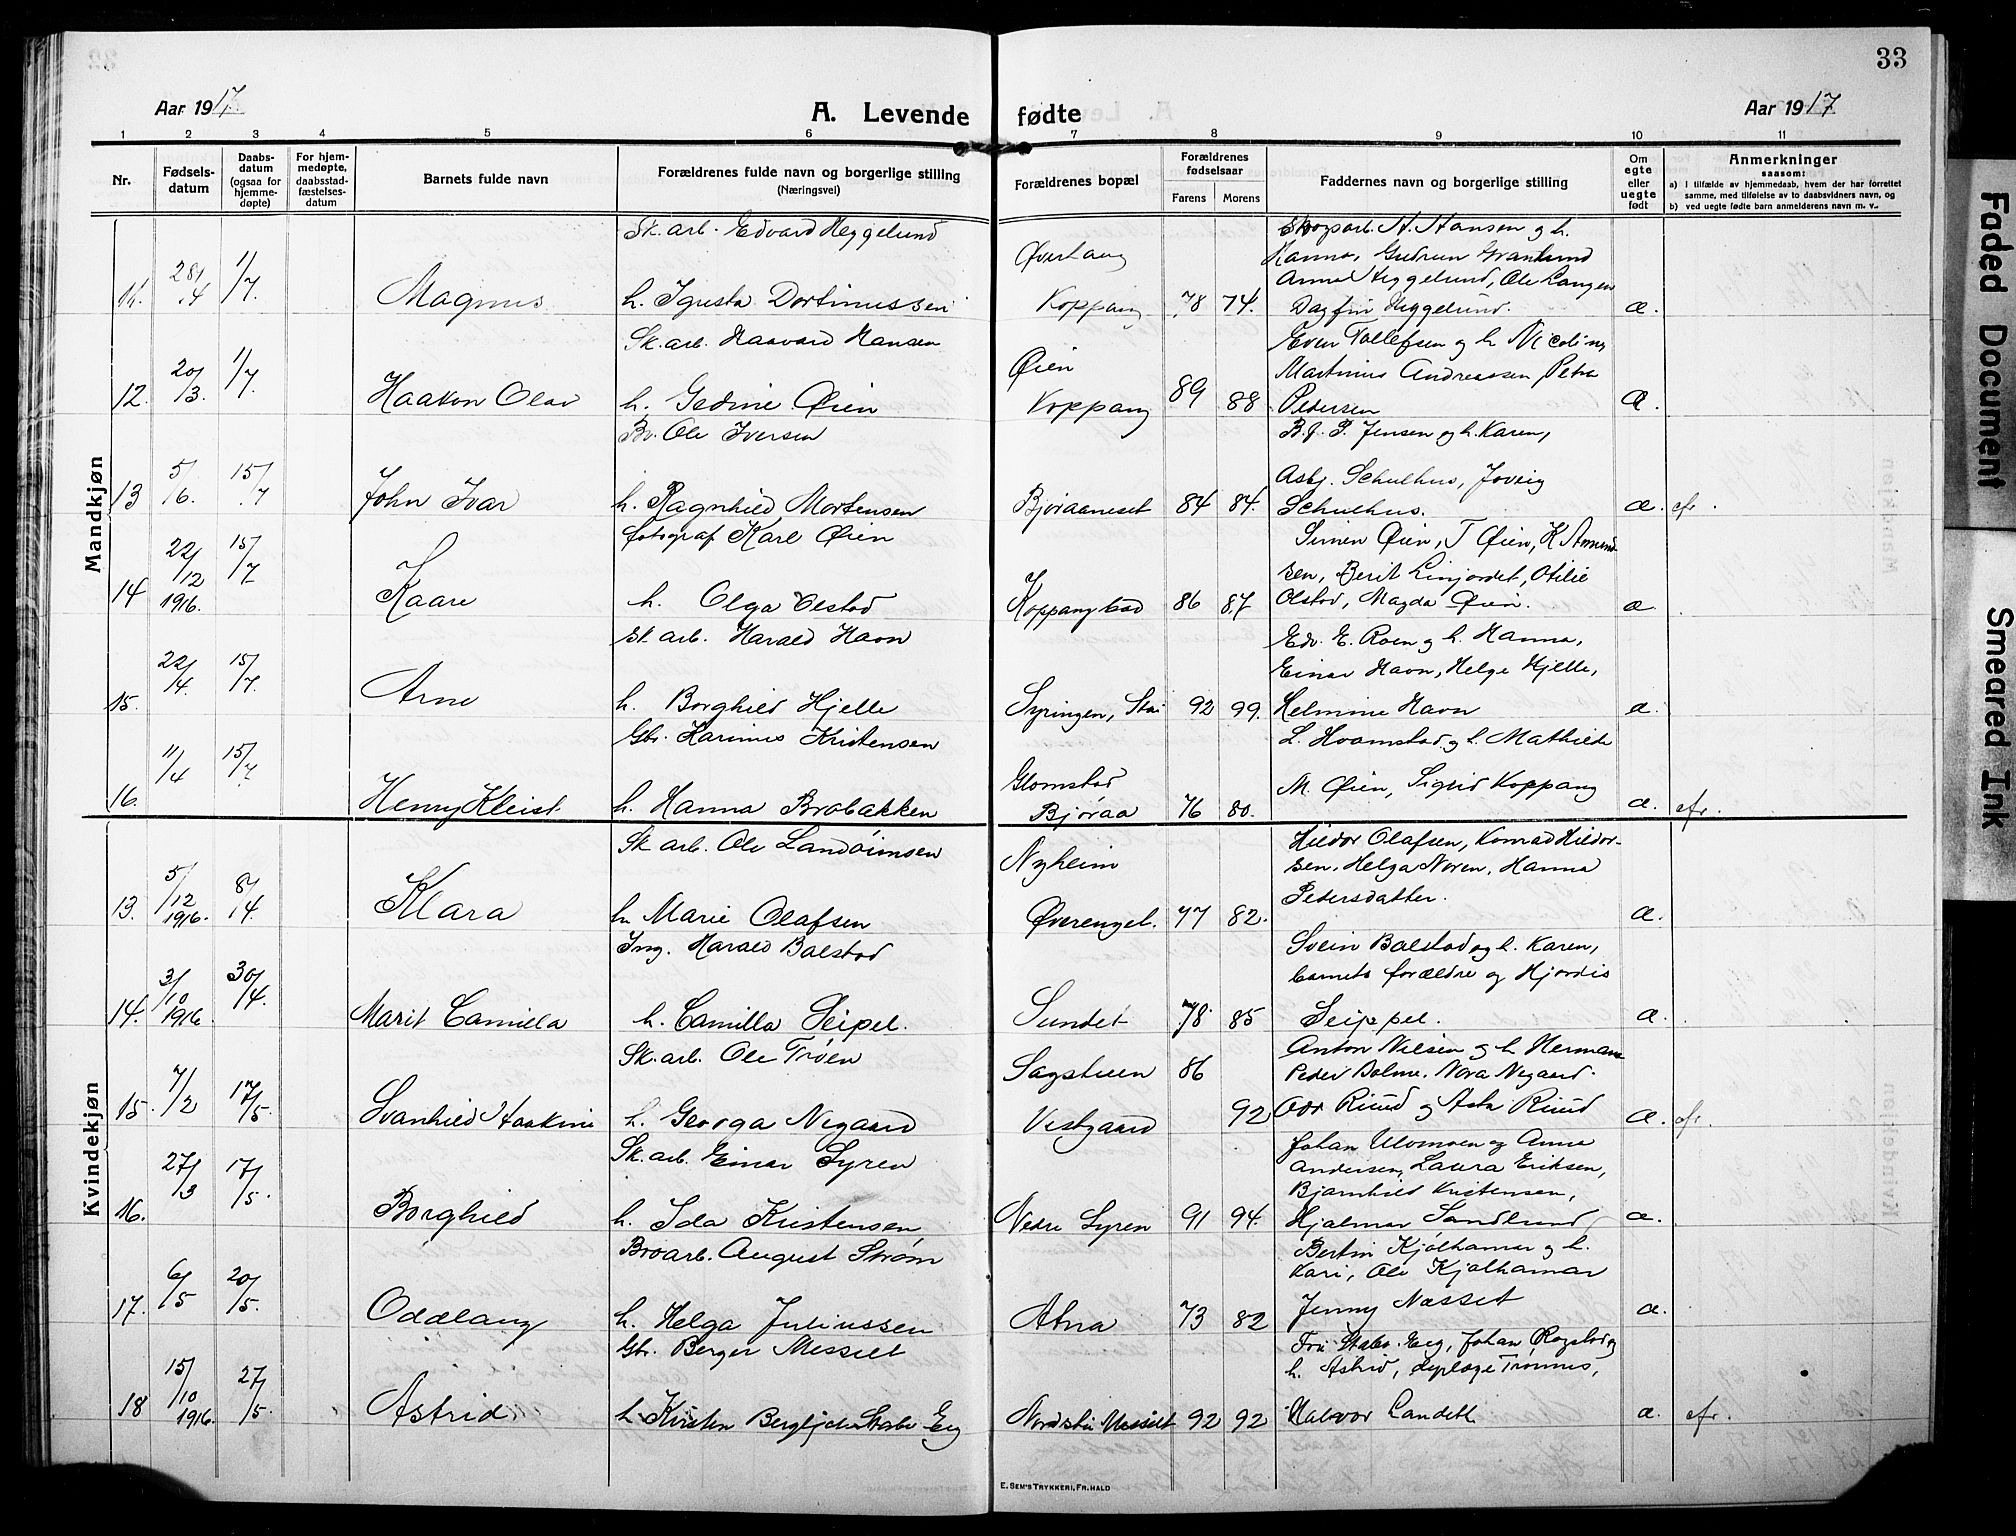 33
Aar 1917.
A. Levende fødte
Aar 1917
1 2 3 4 5 6 7 8 9 10 11
Nr.
Fødsels-
datum
Daabs-
datum
(ogsaa for
hjemme-
døpte)
For hjem-
medøpte,
daabsstad-
fæstelses-
datum
Barnets fulde navn
Forældrenes fulde navn og borgerlige stilling
(Næringsvei)
Forældrenes bopæl
Forældrenes
fødselsaar
Farens Morens
Faddernes navn og borgerlige stilling
Om
egte
eller
uegte
født
Anmerkninger
saasom:
a) i tilfælde av hjemmedaab, hvem der har forrettet
samme, med tilføielse av to daabsvidners navn, og
b) ved uegte fødte barn anmelderens navn m. v.
Mandkjøn
11. 28/4 1/7. Magnus
Sk. arb. Edvard Heggelund
h. Igusta Dortinussen
Øverhaug
Koppang 78 74.
Skogsarb. A. Hansen og h.
Hanna, Gudrun Granlund
Anna Heggelund, Ole Langen
Dagfin Heggelund. æ.
12. 20/3. 1/7. Haakon Olav
Sk. arb. Haavard Hansen
h. Gedine Øien
Øien
Koppang 89 88
Even Tollefsen og h. Nicoline,
Martinus Andreassen, Petra
Pedersen æ.
13 5/6. 15/7 John Ivar
Bv. Ole Iversen
h. Ragnhild Mortensen
Bjøraaneset 84 84.
B.f. P. Jensen og h. Karen,
Asbj. Schulhus, Joveig
Schulhus. æ. efr.
14 22/12 1916. 15/7. Kaare
fotograf Karl Øien
h. Olga Olstad
Koppang stad 86 87
Simen Øien, T Øien, K Amund-
sen, Berit Linjordet, Otilie
Olstad, Magda Øien. æ.
15. 22/4. 15/7. Arne
Sk. arb. Harald Havn
h. Borghild Hjelle
Syringen, Stai 92 99.
Edv. E. Roen og h. Hanna,
Einar Havn, Helge Hjelle,
Helmine Havn æ.
16. 11/4 15/7. Henry Kleist
Gbr. Karinus Kristensen
h. Hanna Brobakken
Glomstad
Bjøraa 76 80.
L. Hvamstad og h. Mathilde
M. Øien, Sigrid Koppang
æ. efr.
Kvindekjøn
13. 5/12 1916. 8/4. Klara
Sk arb. Ole Landøimsen
h. Marie Olafsen
Nyheim
Øverenget. 77 82.
Hildor Olafsen, Konrad Hildor-
sen, Helga Noren, Hanna
Petersdatter. æ.
14. 3/10 1916. 30/4. Marit Camilla
Ing. Harald Balstad
h. Camilla Seipel.
Sundet 78. 85
Svein Balstad og h. Karen,
barnets forældre og Hjørdis
Seippel. æ.
15. 7/2 17/5. Svanhild Haakine
Sk. arb. Ole Trøen
h. Georga Negaard
Sagstuen 86
Vestgaard 92
Anton Nilsen og h Hermane
Peder Bolme. Nora Negaard.
Odd Riiud og Asta Riiud æ. efr.
16. 27/3 17/5. Borghild
Sk. arb. Einar Syren
h. Ida Kristensen
Nedre Syren 91 94.
Johan Ulvmoen og Anna
Andersen, Laura Eriksen,
Bjarnhild Kristensen,
Hjalmar Sandlund æ.
17. 6/5 20/5. Oddlaug
Broarb. August Strøm
h. Helga Juliussen
Atna 73 82
Bertin Kjølhamar og h.
Kari, Ole Kjølhamar
Jenny Næsset æ.
18 15/10 1916. 27/5. Astrid
Gbr. Berger Messelt
h Kirsten Bergljot Stabo Eeg
Nordstu Messelt 92 92
Fru Stabo-Eeg, Johan Rogstad og
h. Astrid, dyplæge Trønnes,
Halvor Landet æ. efr.
E. Sem's Trykkeri, Fr.hald
Faded Document Smeared Ink